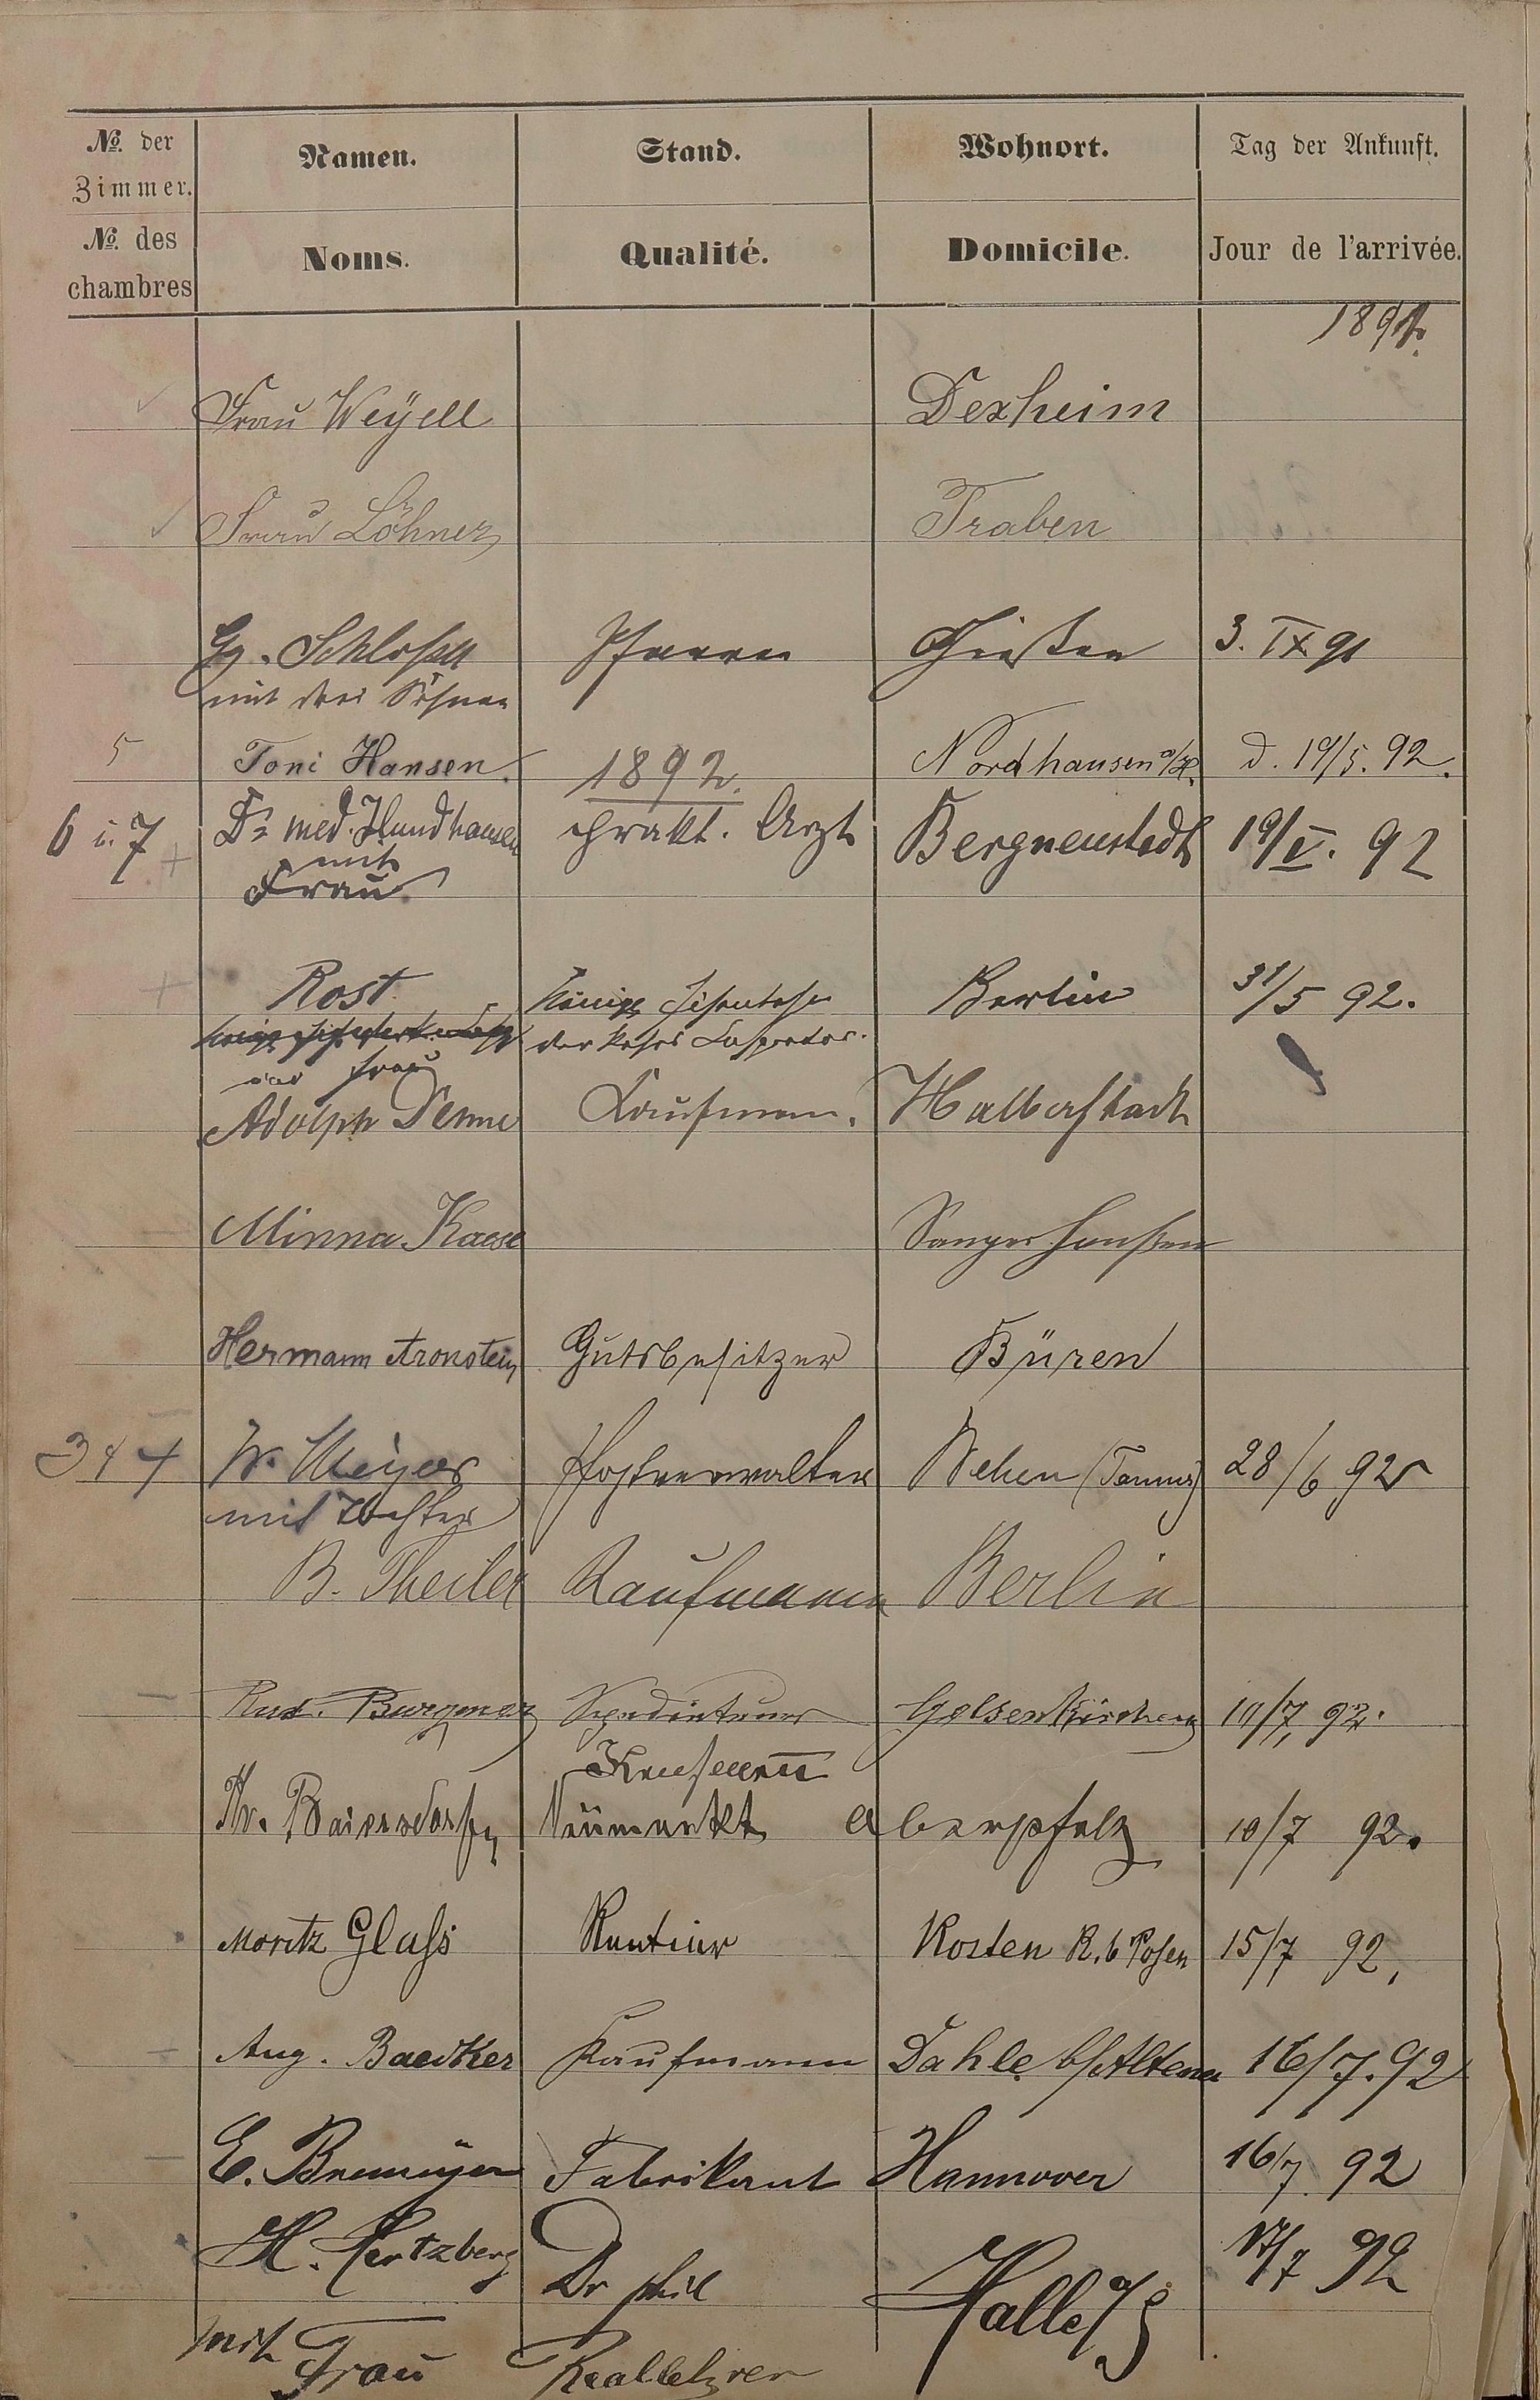 No. der Zimmer. Namen. Stand. Wohnort. Tag der Ankunft.
No. des chambres Noms. Qualité. Domicile. Jour de l'arrivée.
1891.
Frau Weÿell Dexheim
Frau Löhner Traben
Gg. Schlosser Pfarrer Gießen 3. IX 91
mit drei Söhnen
5 Toni Hansen. Nordhausen a/H. d. 19/5. 92.
1892.
6 u. 7 Dr. med. Hundhausen prakt. Arzt Bergneustadt 19/V. 92
mit
Frau
Rost Königl. Eisenbahn Berlin 31/5 92.
und Frau
Adolph Denne Kaufmann. Halberstadt
Minna Kaese Sangerhausen
Hermann Aronstein Gutsbesitzer Büren
3 & 4 W. Meyer Postverwalter Wehen (Taunus) 28/6 92
mit Tochter
B. Theiler Kaufmann Berlin
Rud. Burgmer Spediteur Gelsenkirchen 10/7. 92.
Kaufmann
Baiersdorfer Neumarkt Oberpfalz 10/7 92.
Moritz Glaß Rentier Kosten R. b Posen 15/7 92.
Aug. Baedker Kaufmann Dahle b/Altena 16/7. 92
E. Bremeÿer Fabrikant Hannover 16/7. 92
H. Hertzberg Dr phil Halle a/S 17/7 92
mit Frau Reallehrer